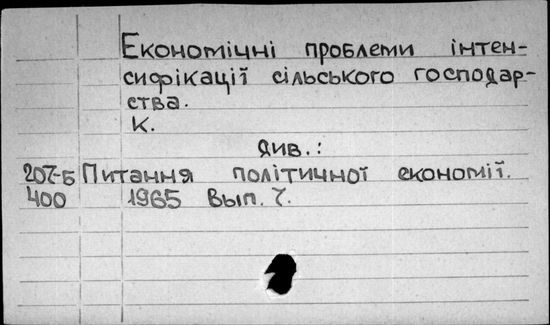 Економічні проблеми інтен-
сифікації сільського господар-
ства.
К.
див.:
207-Б Питання політичної економії.
400 1965 Вып. 7.